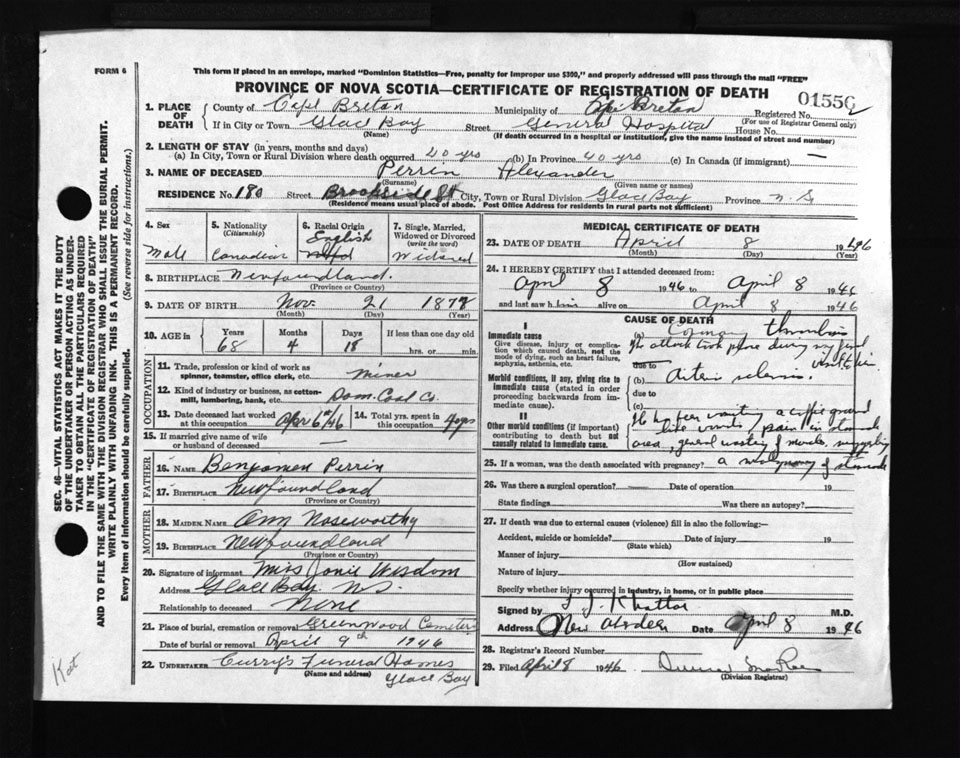 FORM 6
This form if placed in an envelope, marked "Dominion Statistics—Free, penalty for improper use $300," and properly addressed will pass through the mail "FREE"
PROVINCE OF NOVA SCOTIA—CERTIFICATE OF REGISTRATION OF DEATH
1. PLACE OF DEATH
County of Cape Breton Municipality of Cape Breton Registered No. 01550
(For use of Registrar General only)
If in City or Town Glace Bay Street General Hospital House No.
(Name) (If death occurred in a hospital or institution, give the name instead of street and number)
2. LENGTH OF STAY (in years, months and days)
(a) In City, Town or Rural Division where death occurred 40 yrs (b) In Province 40 yrs (c) In Canada (if immigrant) —
3. NAME OF DECEASED Perrin Alexander
(Surname) (Given name or names)
RESIDENCE No. 180 Street Brookside St City, Town or Rural Division Glace Bay Province N.S
(Residence means usual place of abode. Post Office Address for residents in rural parts not sufficient)
4. Sex Male
5. Nationality (Citizenship) Canadian
6. Racial Origin English
7. Single, Married, Widowed or Divorced (write the word) Widowed
8. BIRTHPLACE Newfoundland
(Province or Country)
9. DATE OF BIRTH Nov. 21 1877
(Month) (Day) (Year)
10. AGE in Years Months Days If less than one day old
68 4 18 hrs. or min.
OCCUPATION
11. Trade, profession or kind of work as spinner, teamster, office clerk, etc. miner
12. Kind of industry or business, as cotton-mill, lumbering, bank, etc. Dom. Coal Co.
13. Date deceased last worked at this occupation Apr 6th/46
14. Total yrs. spent in this occupation 40 yrs
15. If married give name of wife or husband of deceased —
FATHER
16. NAME Benjamen Perrin
17. BIRTHPLACE Newfoundland
(Province or Country)
MOTHER
18. MAIDEN NAME Ann Noseworthy
19. BIRTHPLACE Newfoundland
(Province or Country)
20. Signature of informant Mrs Janie Wisdom
Address Glace Bay N.S.
Relationship to deceased None
21. Place of burial, cremation or removal Greenwood Cemetery
Date of burial or removal April 9th 1946
22. UNDERTAKER Curry's Funeral Homes
(Name and address) Glace Bay
MEDICAL CERTIFICATE OF DEATH
23. DATE OF DEATH April 8 1946
(Month) (Day) (Year)
24. I HEREBY CERTIFY that I attended deceased from:
April 8 1946 to April 8 1946
and last saw him alive on April 8 1946
CAUSE OF DEATH
I
Immediate cause
Give disease, injury or complication which caused death, not the mode of dying, such as heart failure, asphyxia, asthenia, etc.
(a) Coronary thrombosis
The attack took place during my first visit to him
due to
Morbid conditions, if any, giving rise to immediate cause (stated in order proceeding backwards from immediate cause).
(b) Arterio sclerosis.
due to
(c)
II
Other morbid conditions (if important) contributing to death but not causally related to immediate cause.
vomiting coffee ground like pain in stomach
area, general wasting of muscles, suggesting
a malignancy of stomach
25. If a woman, was the death associated with pregnancy?
26. Was there a surgical operation? Date of operation 19
State findings Was there an autopsy?
27. If death was due to external causes (violence) fill in also the following:—
Accident, suicide or homicide? Date of injury 19
(State which)
Manner of injury
(How sustained)
Nature of injury
Specify whether injury occurred in industry, in home, or in public place
Signed by J. J. Khattar M.D.
Address New Aberdeen Date April 8 1946
28. Registrar's Record Number
29. Filed April 8 1946
(Division Registrar)
SEC. 46—VITAL STATISTICS ACT MAKES IT THE DUTY
OF THE UNDERTAKER OR PERSON ACTING AS UNDER-
TAKER TO OBTAIN ALL THE PARTICULARS REQUIRED
IN THE "CERTIFICATE OF REGISTRATION OF DEATH"
AND TO FILE THE SAME WITH THE DIVISION REGISTRAR WHO SHALL ISSUE THE BURIAL PERMIT.
WRITE PLAINLY WITH UNFADING INK. THIS IS A PERMANENT RECORD.
Every item of information should be carefully supplied. (See reverse side for instructions.)
Kat